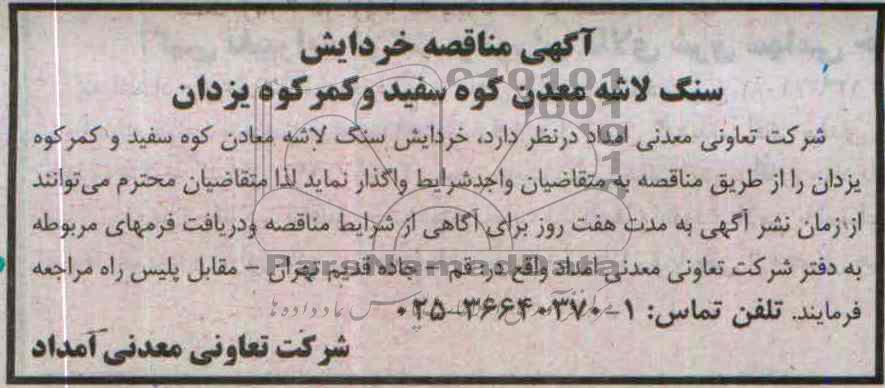 آگهی مناقصه خردایش
سنگ لاشه معدن کوه سفید و کمر کوه یزدان
شرکت تعاونی معدنی امداد درنظر دارد، خردایش سنگ لاشه معادن کوه سفید و کمرکوه
یزدان را از طریق مناقصه به متقاضیان واجدشرایط واگذار نماید لذا متقاضیان محترم می‌توانند
از زمان نشر آگهی به مدت هفت روز برای آگاهی از شرایط مناقصه ودریافت فرمهای مربوطه
به دفتر شرکت تعاونی معدنی امداد واقع در: قم – جاده قدیم تهران – مقابل پلیس راه مراجعه
فرمایند. تلفن تماس: ۱-۳۶۶۴۰۳۷۰-۰۲۵
شرکت تعاونی معدنی آمداد
ParsNamadData